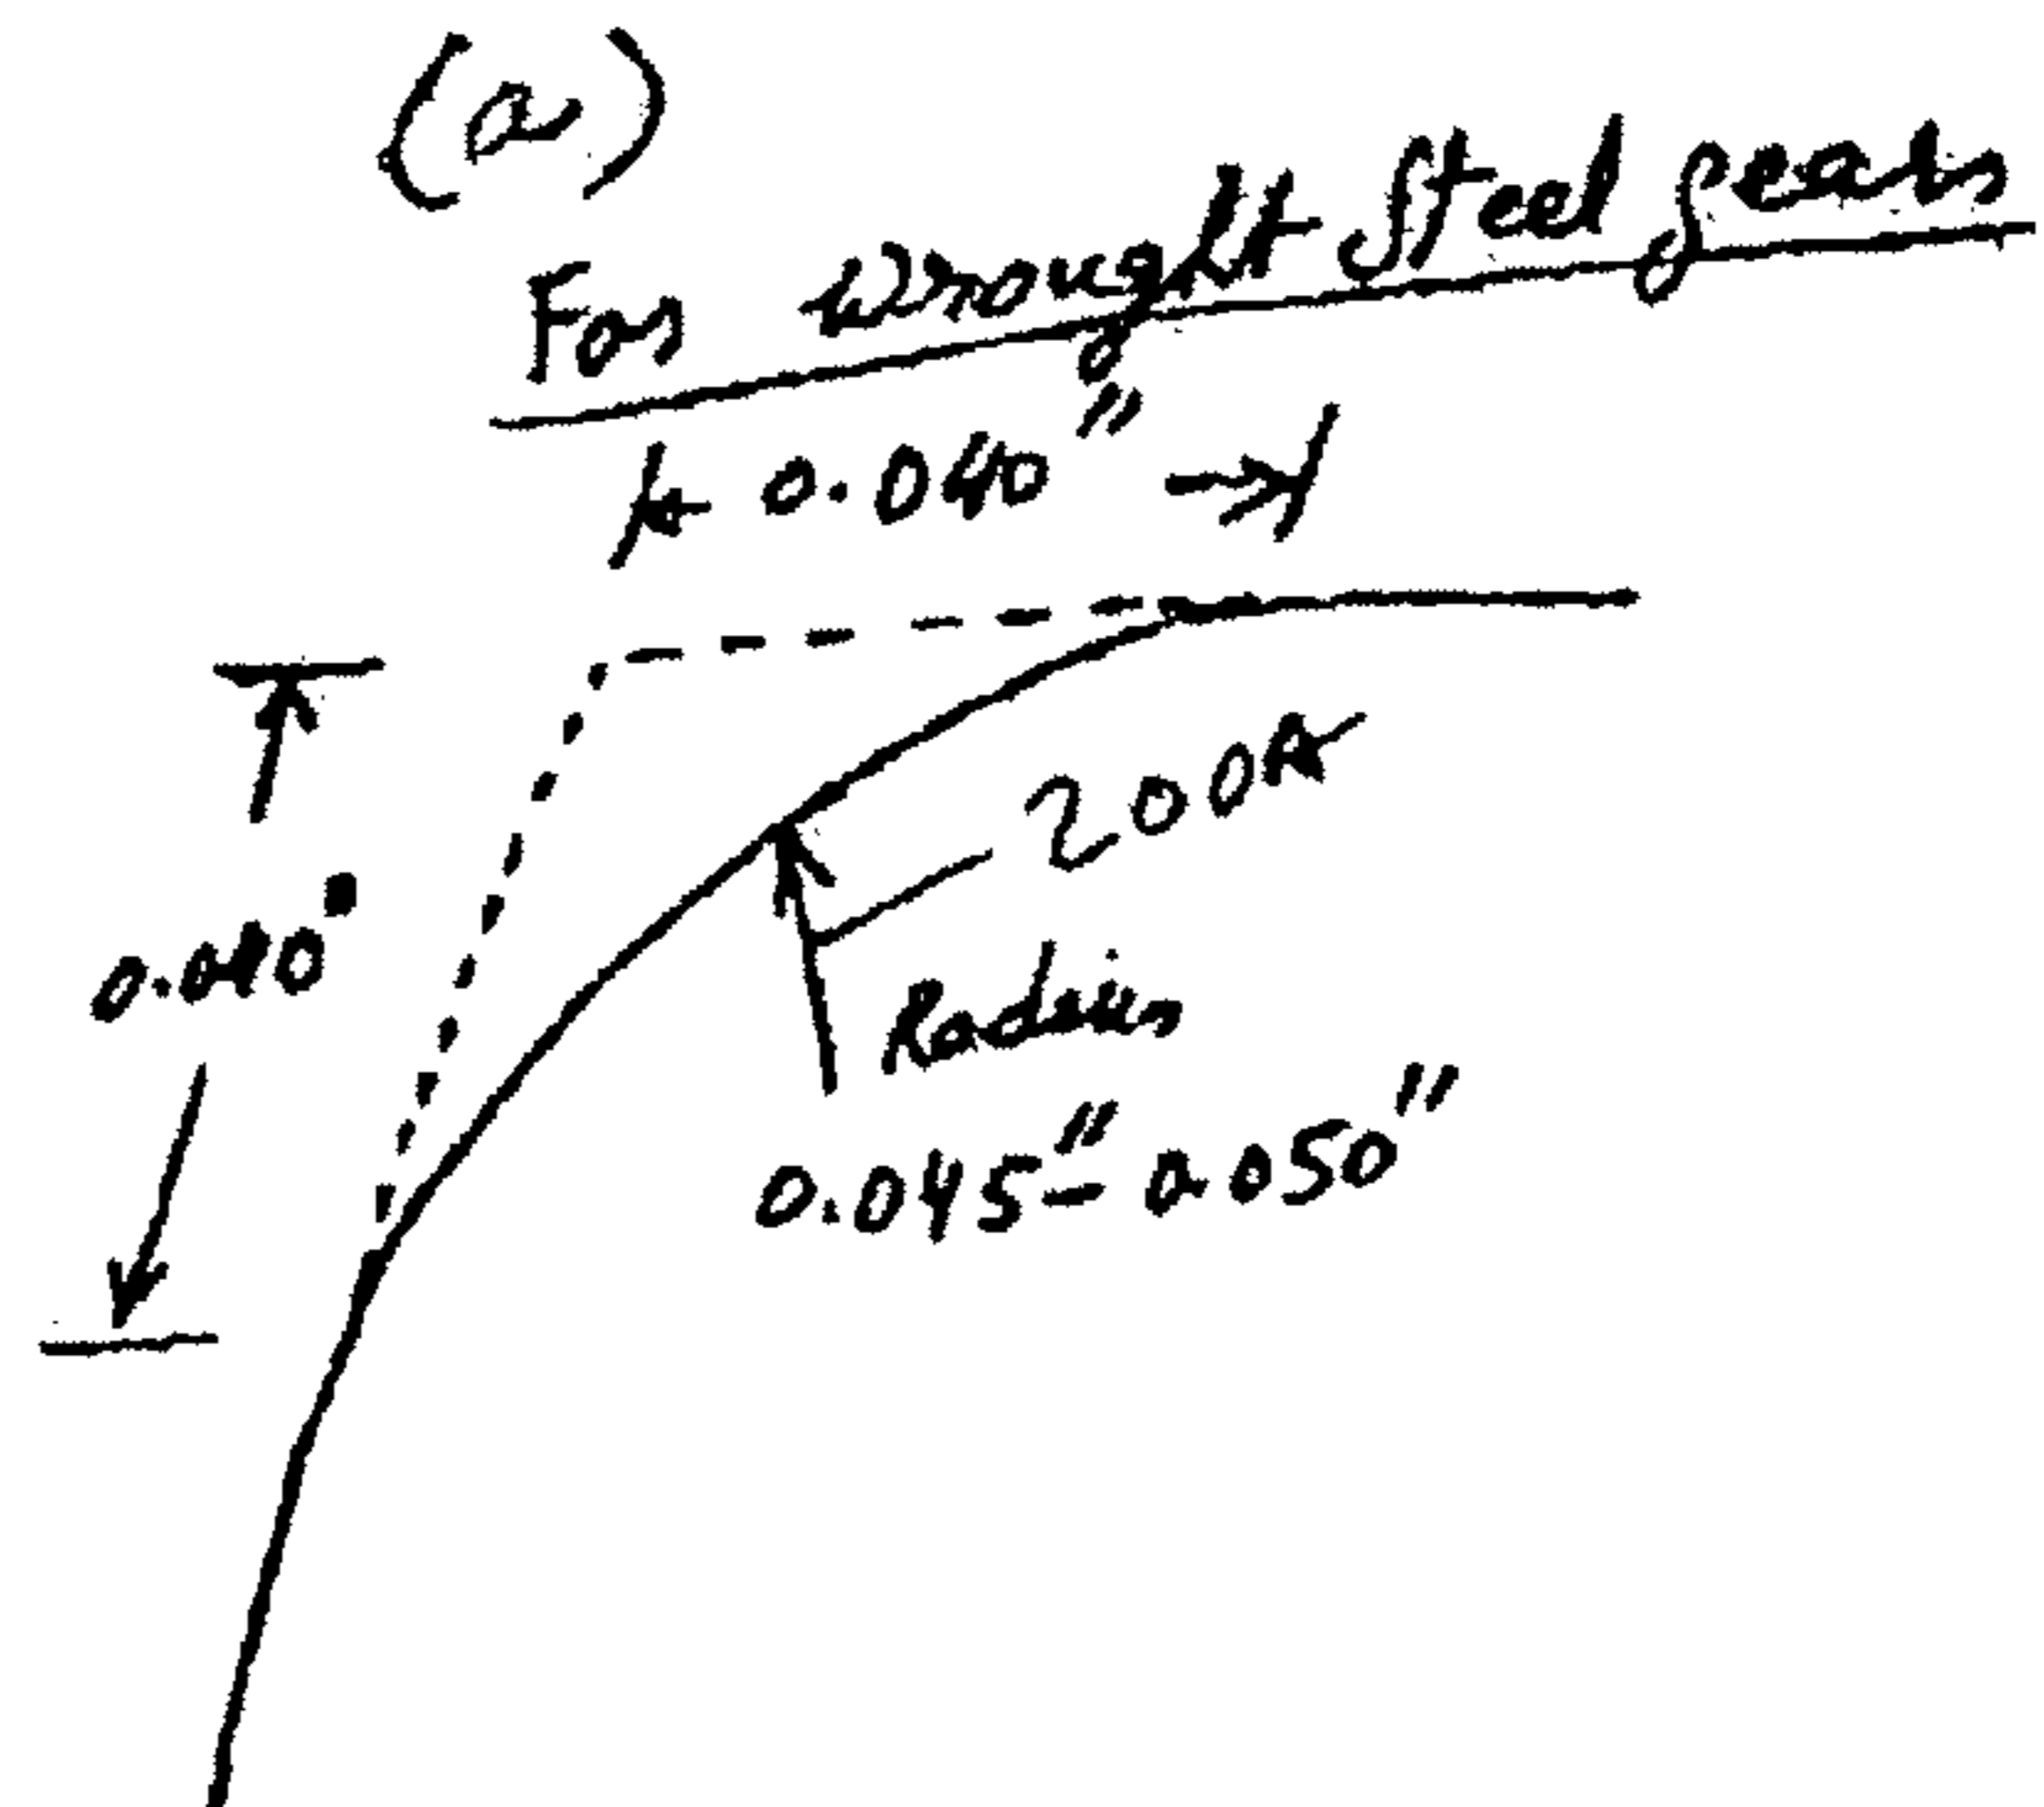 (a)
For wrought Steel gears
0.040"
0.040"
Radius
0.045"- 0.050"